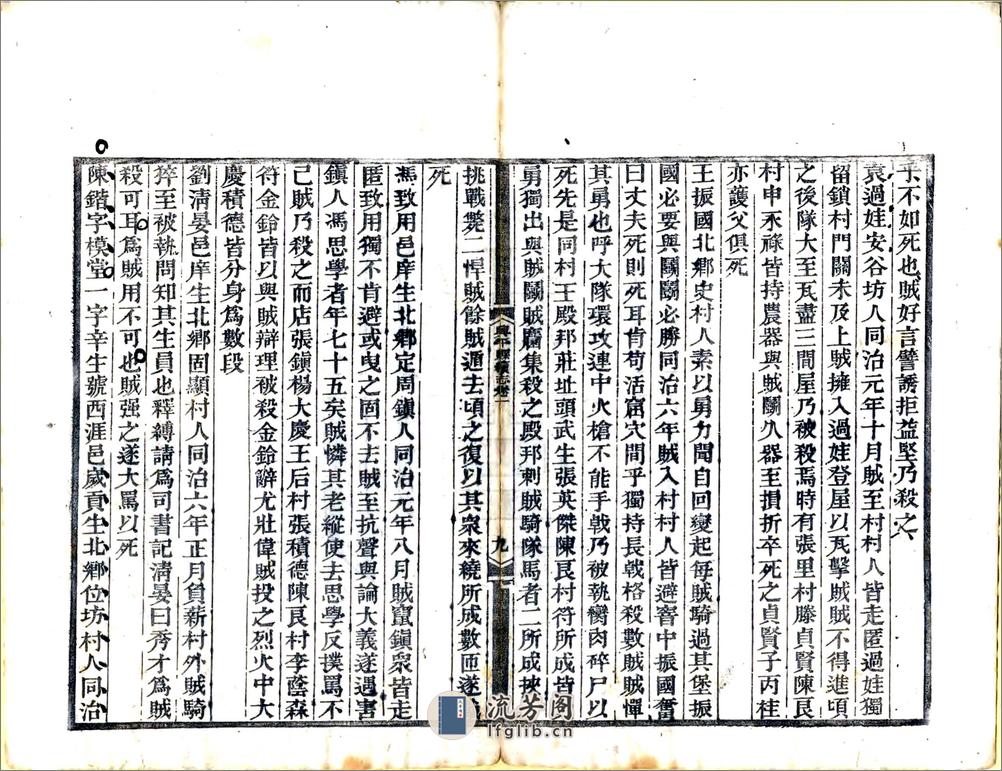 乎不如死也賊好言譬誘拒益堅乃殺之
袁過娃安谷坊人同治元年十月賊至村村人皆走匿過娃獨
留鎖村門闢未及上賊擁入過娃登屋以瓦擊賊賊不得進頃
之後隊大至瓦盡三間屋乃被殺焉時有張里村滕貞賢陳良
村申永祿皆持農器與賊鬭久器至損折卒死之貞賢子丙桂
亦護父俱死
王振國北鄉史村人素以勇力聞自回變起每賊騎過其堡振
國必要與鬭鬭必勝同治六年賊入村村人皆避窖中振國奮
曰丈夫死則死耳肯苟活窟穴間乎獨持長戟格殺數賊賊憚
其勇也呼大隊環攻連中火槍不能手戟乃被執臠肉碎尸以
死先是同村王殿邦莊址頭武生張英傑陳良村符所成皆
勇獨出與賊鬭賊麕集殺之殿邦刺賊騎隊馬者二所成挾
挑戰斃二悍賊餘賊遁去頃之復以其衆來繞所成數匝遂
死
興平縣續志卷一
九
馮致用邑庠生北鄉定周鎮人同治元年八月賊竄鎮衆皆走
匿致用獨不肯避或曳之固不去賊至抗聲與論大義遂遇害
鎮人馮思學者年七十五矣賊憐其老縱使去思學反撲罵不
已賊乃殺之而店張鎮楊大慶王后村張積德陳良村李蔭森
符金鈴皆以與賊辯理被殺金鈴辭尤壯偉賊投之烈火中大
慶積德皆分身爲數段
劉清晏邑庠生北鄉固顯村人同治六年正月負薪村外賊騎
猝至被執問知其生員也釋縛請爲司書記清晏曰秀才爲賊
殺可耳爲賊用不可也賊强之遂大罵以死
陳鍇字模堂一字辛生號西涯邑歲貢生北鄉位坊村人同治
流芳阁
lfglib.cn